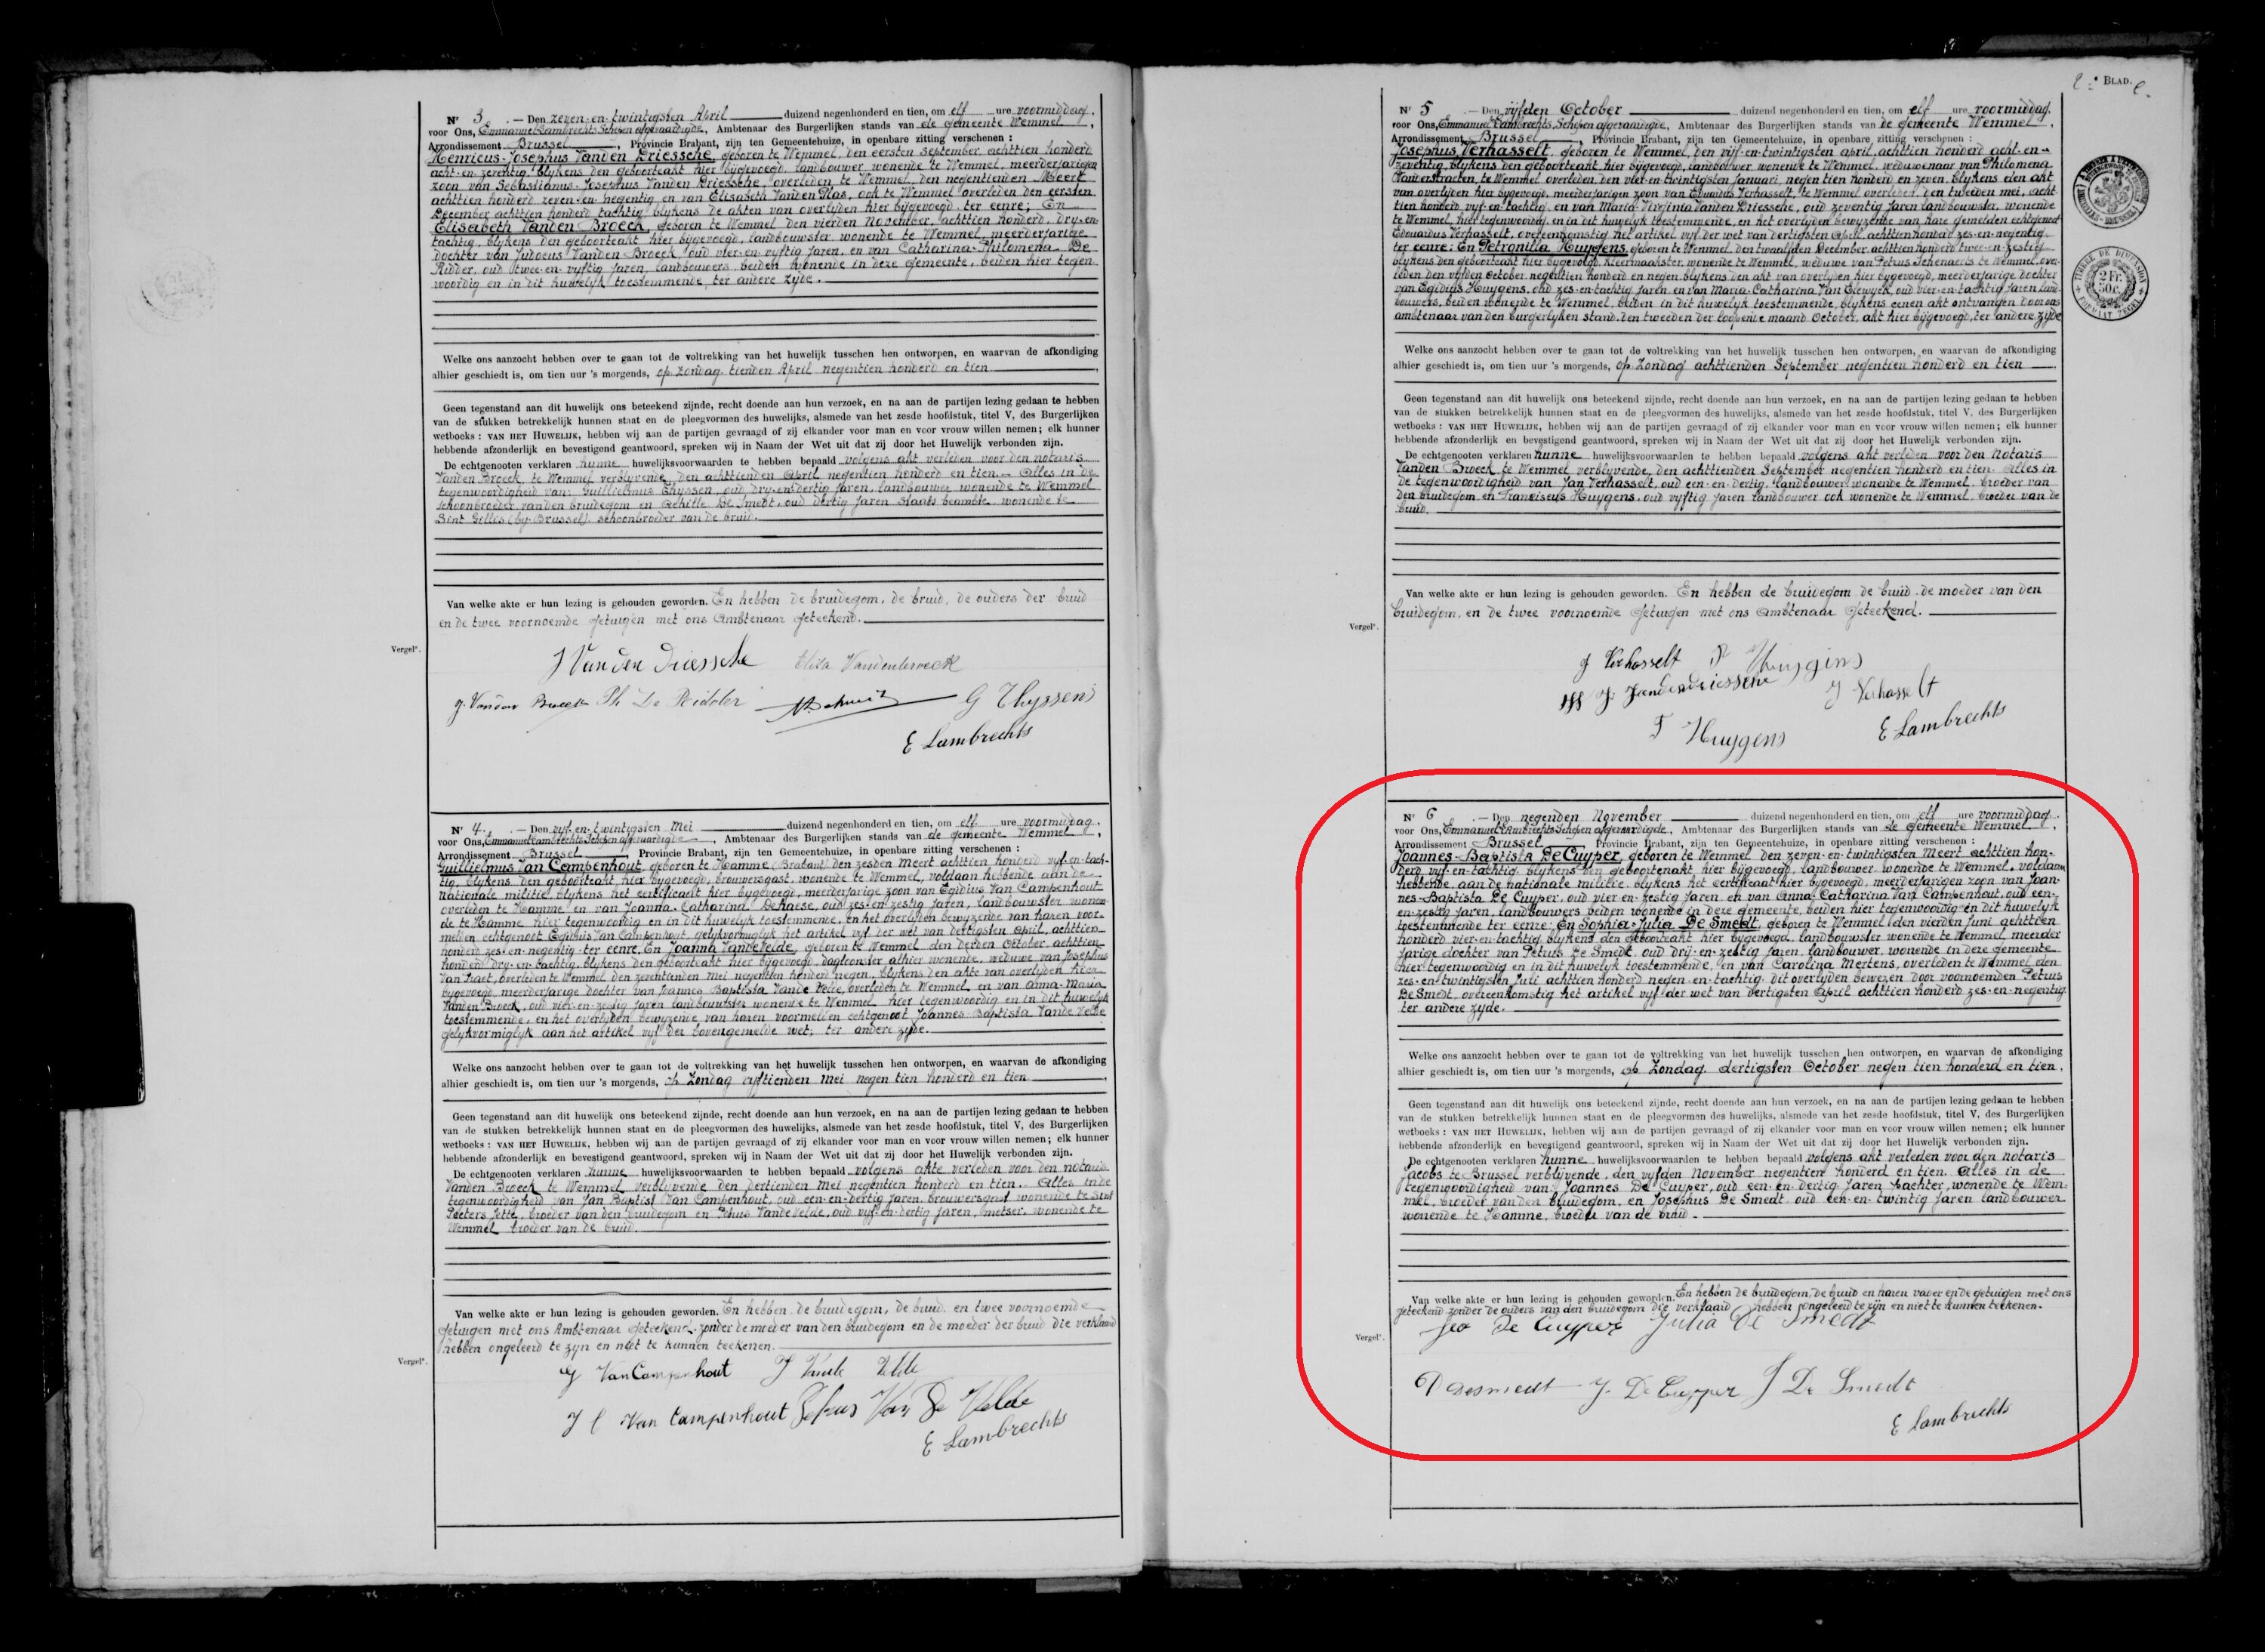 Nr 3. — Den zeven-en-twintigsten April duizend negenhonderd en tien, om elf ure voormiddag,
voor Ons, Emmanuel Lambrechts, Schepen afgevaardigde, Ambtenaar des Burgerlijken stands van de gemeente Wemmel,
Arrondissement Brussel, Provincie Brabant, zijn ten Gemeentehuize, in openbare zitting verschenen :
Henricus-Josephus Vanden Driessche, geboren te Wemmel, den eersten September, achttien honderd
acht-en-zeventig, blykens den geboorteakt hier bygevoegd, landbouwer wonende te Wemmel, meerderjarigen
zoon van Sebastianus-Josephus Vanden Driessche, overleden te Wemmel, den negentienden Meert
achttien honderd zeven-en-negentig en van Elisabeth Vanden Plas, ook te Wemmel overleden den eersten
December achttien honderd tachtig, blykens de akten van overlyden hier bygevoegd, ter eenre; En
Elisabeth Vanden Broeck, geboren te Wemmel den vierden November, achttien honderd dry-en-
tachtig, blykens den geboorteakt hier bygevoegd, landbouwster wonende te Wemmel, meerderjarige
dochter van Judocus Vanden Broeck, oud vier-en-vyftig Jaren, en van Catharina-Philomena De
Ridder, oud twee-en-vyftig Jaren, landbouwers, beiden wonende in deze gemeente, beiden hier tegen-
woordig en in dit huwelyk toestemmende, ter andere zyde.
Welke ons aanzocht hebben over te gaan tot de voltrekking van het huwelijk tusschen hen ontworpen, en waarvan de afkondiging
alhier geschiedt is, om tien uur 's morgends, op Zondag tienden April negentien honderd en tien
Geen tegenstand aan dit huwelijk ons beteekend zijnde, recht doende aan hun verzoek, en na aan de partijen lezing gedaan te hebben
van de stukken betrekkelijk hunnen staat en de pleegvormen des huwelijks, alsmede van het zesde hoofdstuk, titel V, des Burgerlijken
wetboeks : VAN HET HUWELIJK, hebben wij aan de partijen gevraagd of zij elkander voor man en voor vrouw willen nemen; elk hunner
hebbende afzonderlijk en bevestigend geantwoord, spreken wij in Naam der Wet uit dat zij door het Huwelijk verbonden zijn.
De echtgenooten verklaren hunne huwelijksvoorwaarden te hebben bepaald volgens akt verleden voor den notaris
Vanden Broeck, te Wemmel verblyvende, den achttienden April negentien honderd en tien. Alles in de
tegenwoordigheid van: Guillielmus Thyssen, oud dry-en-dertig Jaren, landbouwer wonende te Wemmel
schoonbroeder vanden bruidegom en Achille De Smedt, oud dertig Jaren staats beambte, wonende te
Sint Gillis (by Brussel), schoonbroeder van de bruid.
Van welke akte er hun lezing is gehouden geworden. En hebben de bruidegom, de bruid, de ouders der bruid
en de twee voornoemde getuigen met ons Ambtenaar geteekend.
Vergelr.
J Vanden Driessche Elisa Vandenbroeck
J. Vanden Broeck Ph De Ridder G Thyssens
E Lambrechts
Nr 4. — Den vyf-en-twintigsten Mei duizend negenhonderd en tien, om elf ure voormiddag,
voor Ons, Emmanuel Lambrechts Schepen afgevaardigde, Ambtenaar des Burgerlijken stands van de gemeente Wemmel,
Arrondissement Brussel, Provincie Brabant, zijn ten Gemeentehuize, in openbare zitting verschenen :
Guillielmus Van Campenhout, geboren te Hamme (Brabant) den zesden Meert achttien honderd vyf-en-tach-
tig, blykens den geboorteakt hier bygevoegd, brouwersgast, wonende te Wemmel, voldaan hebbende aan de
Nationale militie, blykens het certificaat hier bygevoegd, meerderjarige zoon van Egidius Van Campenhout
overleden te Hamme en van Joanna-Catharina Dehaese, oud zes-en-zestig Jaren, landbouwster wonen-
de te Hamme hier tegenwoordig en in dit huwelyk toestemmende, en het overlyden bewyzende van haren voor-
melden echtgenoot Egidius Van Campenhout, gelykvormiglyk het artikel vyf der wet van dertigsten April, achttien
honderd zes-en-negentig, ter eenre, En Joanna VandeVelde, geboren te Wemmel den derden October achttien
honderd dry-en-tachtig, blykens den geboorteakt hier bygevoegd, dagloonster alhier wonende, weduwe van Josephus
overleden te Wemmel den zeventienden Mei negentien honderd negen, blykens den akte van overlyden hier
bygevoegd, meerderjarige dochter van Joannes Baptista Vande Velde, overleden te Wemmel, en van Anna-Maria
Vanden Broeck, oud vier-en-zestig Jaren landbouwster wonende te Wemmel hier tegenwoordig en in dit huwelyk
toestemmende, en het overlyden bewyzende van haren voormelden echtgenoot Joannes Baptista Vande Velde
gelykvormiglyk aan het artikel vyf der bovengemelde wet; ter andere zyde.
Welke ons aanzocht hebben over te gaan tot de voltrekking van het huwelijk tusschen hen ontworpen, en waarvan de afkondiging
alhier geschiedt is, om tien uur 's morgends, op Zondag vyftienden Mei negen tien honderd en tien
Geen tegenstand aan dit huwelijk ons beteekend zijnde, recht doende aan hun verzoek, en na aan de partijen lezing gedaan te hebben
van de stukken betrekkelijk hunnen staat en de pleegvormen des huwelijks, alsmede van het zesde hoofdstuk, titel V, des Burgerlijken
wetboeks : VAN HET HUWELIJK, hebben wij aan de partijen gevraagd of zij elkander voor man en voor vrouw willen nemen; elk hunner
hebbende afzonderlijk en bevestigend geantwoord, spreken wij in Naam der Wet uit dat zij door het Huwelijk verbonden zijn.
De echtgenooten verklaren hunne huwelijksvoorwaarden te hebben bepaald volgens akte verleden voor den notaris
Vanden Broeck te Wemmel verblyvende den dertienden Mei negentien honderd en tien. Alles in de
tegenwoordigheid van Jan Baptist Van Campenhout, oud een-en-dertig Jaren, brouwersgast wonende te Sint
Peeters Jette, broeder van den bruidegom en Petrus VandeVelde, oud vyf-en-dertig Jaren, metser, wonende te
Wemmel broeder van de bruid.
Van welke akte er hun lezing is gehouden geworden. En hebben de bruidegom, de bruid en twee voornoemde
getuigen met ons Ambtenaar geteekend, zonder de moeder van den bruidegom en de moeder der bruid die verklaard
hebben ongeleerd te zyn en niet te kunnen teekenen.
Vergelr.
G VanCampenhout J Vande Velde
J B Van Campenhout Petrus Van De Velde
E Lambrechts
2e BLAD. 2.
Nr 5. — Den vijfden October duizend negenhonderd en tien, om elf ure voormiddag,
voor Ons, Emmanuel Lambrechts, Schepen afgevaardigde, Ambtenaar des Burgerlijken stands van de gemeente Wemmel,
Arrondissement Brussel, Provincie Brabant, zijn ten Gemeentehuize, in openbare zitting verschenen :
Josephus Verhasselt, geboren te Wemmel, den vijf-en-twintigsten april, achttien honderd acht-en-
zeventig, blykens den geboorteakt hier bygevoegd, landbouwer wonende te Wemmel, weduwenaar van Philomena
Vanderstraeten, te Wemmel overleden, den vier-en-twintigsten Januari, negen tien honderd en zeven blykens den akt
van overlyden hier bygevoegd, meerderjarige zoon van Eduardus Verhasselt, te Wemmel overleden, den tweeden mei, acht-
tien honderd vyf-en-tachtig, en van Maria-Virginia Vanden Driessche, oud zeventig Jaren landbouwster, wonende
te Wemmel, hier tegenwoordig en in dit huwelyk toestemmende, en het overlyden bewyzende van hare gemelden echtgenoot
Edouardus Verhasselt, overeenkomstig het artikel vijf der wet van dertigsten April, achttien honderd zes-en-negentig,
ter eenre; En Petronilla Huygens, geboren te Wemmel, den twaalfden December, achttien honderd twee-en-zestig
blykens den geboorteakt hier bygevoegd, kleermaakster, wonende te Wemmel, weduwe van Petrus Schenaerts te Wemmel, over-
leden den vyfden October negentien honderd en negen, blykens den akt van overlyden hier bygevoegd, meerderjarige dochter
van Egidius Huygens, oud zes-en-tachtig Jaren, en van Maria-Catharina Van Elewyck, oud vier-en-tachtig Jaren, land-
bouwers, beiden wonende te Wemmel, beiden in dit huwelyk toestemmende, blykens eenen akt ontvangen door ons
ambtenaar van den burgerlyken stand, den tweeden der loopende maand October, akt hier bijgevoegd, ter andere zyde
Welke ons aanzocht hebben over te gaan tot de voltrekking van het huwelijk tusschen hen ontworpen, en waarvan de afkondiging
alhier geschiedt is, om tien uur 's morgends, op Zondag achttienden September negentien honderd en tien
Geen tegenstand aan dit huwelijk ons beteekend zijnde, recht doende aan hun verzoek, en na aan de partijen lezing gedaan te hebben
van de stukken betrekkelijk hunnen staat en de pleegvormen des huwelijks, alsmede van het zesde hoofdstuk, titel V, des Burgerlijken
wetboeks : VAN HET HUWELIJK, hebben wij aan de partijen gevraagd of zij elkander voor man en voor vrouw willen nemen; elk hunner
hebbende afzonderlijk en bevestigend geantwoord, spreken wij in Naam der Wet uit dat zij door het Huwelijk verbonden zijn.
De echtgenooten verklaren hunne huwelijksvoorwaarden te hebben bepaald volgens akt verleden voor den Notaris
Vanden Broeck te Wemmel verblyvende, den achttienden September negentien honderd en tien. Alles in
de tegenwoordigheid van Jan Verhasselt, oud een-en-dertig, landbouwer, wonende te Wemmel, broeder van
den bruidegom, en Franciscus Huygens, oud vyftig Jaren landbouwer ook wonende te Wemmel, broeder van de
bruid.
Van welke akte er hun lezing is gehouden geworden. En hebben de bruidegom de bruid, de moeder van den
bruidegom, en de twee voornoemde getuigen met ons Ambtenaar geteekend.
Vergelr.
J Verhasselt P Huygens
J Vandendriessche J Verhasselt
F Huygens E Lambrechts
TIMBRE DE DIMENSION
2 Fr.
50 c.
FORMAAT ZEGEL
Nr 6 — Den negenden November duizend negenhonderd en tien, om elf ure voormiddag,
voor Ons, Emmanuel Lambrechts, Schepen afgevaardigde, Ambtenaar des Burgerlijken stands van de gemeente Wemmel,
Arrondissement Brussel, Provincie Brabant, zijn ten Gemeentehuize, in openbare zitting verschenen :
Joannes-Baptista De Cuyper, geboren te Wemmel den zeven-en-twintigsten Meert achttien hon-
derd vyf-en-tachtig, blykens den geboortenakt hier bijgevoegd, landbouwer wonende te Wemmel, voldaan
hebbende, aan de nationale militie, blykens het certificaat hier bijgevoegd, meerderjarigen zoon van Joan-
nes-Baptista De Cuyper, oud vier en zestig Jaren en van Anna-Catharina Van Campenhout, oud een-
en-zestig Jaren, landbouwers beiden wonende in deze gemeente, beiden hier tegenwoordig en in dit huwelyk
toestemmende ter eenre; En Sophia-Julia De Smedt, geboren te Wemmel den vierden Juni achttien
honderd vier-en-tachtig, blykens den geboorteakt hier bijgevoegd, landbouwster wonende te Wemmel meerder
jarige dochter van Petrus De Smedt, oud drij-en-zestig Jaren, landbouwer, wonende in deze gemeente
hier tegenwoordig en in dit huwelyk toestemmende, en van Carolina Mertens, overleden te Wemmel den
zes-en-twintigsten Juli achttien honderd negen-en-tachtig, dit overlyden bewezen door voornoemden Petrus
De Smedt, overeenkomstig het artikel vijf der wet van dertigsten April achttien honderd zes-en-negentig
ter andere zyde.
Welke ons aanzocht hebben over te gaan tot de voltrekking van het huwelijk tusschen hen ontworpen, en waarvan de afkondiging
alhier geschiedt is, om tien uur 's morgends, op Zondag dertigsten October negen tien honderd en tien.
Geen tegenstand aan dit huwelijk ons beteekend zijnde, recht doende aan hun verzoek, en na aan de partijen lezing gedaan te hebben
van de stukken betrekkelijk hunnen staat en de pleegvormen des huwelijks, alsmede van het zesde hoofdstuk, titel V, des Burgerlijken
wetboeks : VAN HET HUWELIJK, hebben wij aan de partijen gevraagd of zij elkander voor man en voor vrouw willen nemen; elk hunner
hebbende afzonderlijk en bevestigend geantwoord, spreken wij in Naam der Wet uit dat zij door het Huwelijk verbonden zijn.
De echtgenooten verklaren hunne huwelijksvoorwaarden te hebben bepaald volgens akt verleden voor den notaris
Jacobs te Brussel verblijvende, den vijfden November negentien honderd en tien. Alles in de
tegenwoordigheid van: Joannes De Cuyper, oud een-en-dertig Jaren pachter, wonende te Wem-
mel, broeder van den bruidegom, en Josephus De Smedt, oud een-en-twintig Jaren landbouwer
wonende te Hamme, broeder van de bruid.
Van welke akte er hun lezing is gehouden geworden. En hebben de bruidegom, de bruid en haren vader en de getuigen met ons
geteekend zonder de ouders van den bruidegom die verklaard hebben ongeleerd te zijn en niet te kunnen teekenen.
Vergelr.
De Cuyper Julia De Smedt
P Desmedt J. De Cuyper J De Smedt
E Lambrechts